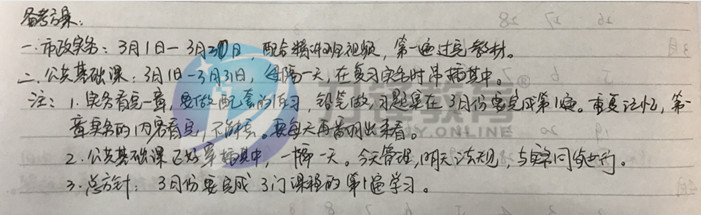 备考方案:
一.市政实务:3月1日—3月30日,配合精讲班视频,第一遍过完教材。
二.公共基础课:3月1日—3月31日,每隔一天,在复习实务时串插其中。
注:1.实务看完一章,要做配套的练习,铅笔做,习题集在3月份要完成第1遍。重复记忆,第一
章实务的内容看完,不能丢。要每天再翻出来看。
2.公共基础课也要穿插其中,一隔一天。今天管理,明天法规,与实务同步进行。
3.总方针:3月份要完成3门课程的第1遍学习。
教育
ONLINE
26 27 28